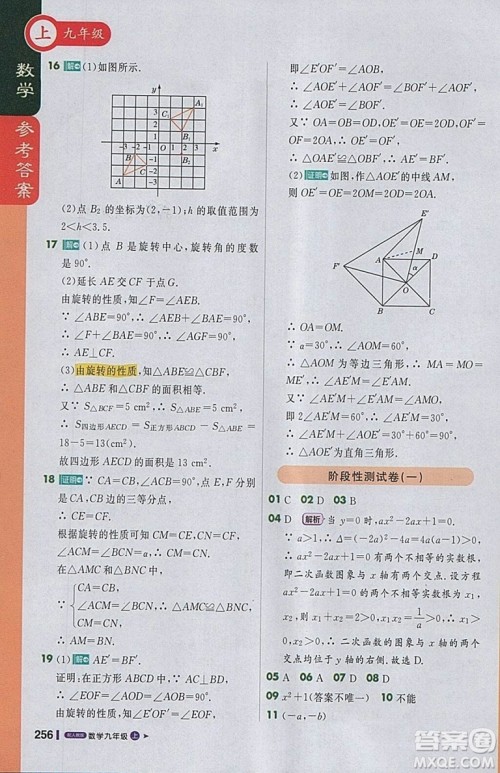 上 九年级
数学
参考答案
16 解 (1)如图所示.
y
3
2
1
C₁
A₁
B₂
-3 -2
1 2 3 x
-3
(2)点 B₂ 的坐标为(2,-1);h 的取值范围为
2<h<3.5.
17 解 (1)点 B 是旋转中心,旋转角的度数
是 90°.
(2)延长 AE 交 CF 于点 G.
由旋转的性质,知∠F=∠AEB.
∵ ∠ABE=90°,∴ ∠EAB+∠AEB=90°,
∴ ∠F+∠EAB=90°,∴ ∠AGF=90°,
∴ AE⊥CF.
(3)由旋转的性质,知△ABE≌△CBF,
∴ △ABE 和△CBF 的面积相等.
又∵ S△BCF=5 cm²,∴ S△ABE=5 cm²,
∴ S四边形AECD=S正方形ABCD-S△ABE=
18-5=13(cm²).
故四边形 AECD 的面积是 13 cm².
18 证明 ∵ CA=CB,∠ACB=90°,E,F 分别
是 CA,CB 边的三等分点,
∴ CE=CF.
根据旋转的性质可知 CM=CE=CN=CF,
∠ACM=∠BCN.
在△AMC 和△BNC 中,
∵ { CA=CB,
∠ACM=∠BCN,
CM=CN,
∴ △AMC≌△BNC,
∴ AM=BN.
19 (1)解 AE′=BF′.
证明:在正方形 ABCD 中,AC⊥BD,
∴ ∠EOF=∠AOD=∠AOB=90°,
∴ ∠E′OF′=∠EOF=90°,
即∠E′OF′=∠AOB,
∴ ∠AOE′+∠AOF′=∠BOF′+∠AOF′,
∴ ∠AOE′=∠BOF′.
又∵ OA=OB=OD,OE=2OD,OF=2OA,
∴ OE=OF,∴ OE′=OF′,
∴ △OAE′≌△OBF′,∴ AE′=BF′.
(2)证明 如图,作△AOE′的中线 AM,
E′
F′
A
M
D
α
O
B
C
∴ OE=OE′=2OD=2OA=2OM,
∴ OA=OM.
∵ α=30°,
∴ ∠AOM=60°,
∴ △AOM 为等边三角形,∴ MA=MO=
ME′,
∴ ∠AE′M=∠E′AM.
又∵ ∠AE′M+∠E′AM=∠AMO,
即 2∠AE′M=60°,∴ ∠AE′M=30°,
∴ ∠AE′M+∠AOE′=30°+60°=90°,
∴ ∠OAE′=90°,
∴ △AOE′为直角三角形.
阶段性测试卷(一)
01 C 02 D 03 B
04 D 解析 当 y=0 时,ax²-2ax+1=0.
∵ a>1,∴ Δ=(-2a)²-4a=4a(a-1)>0,
∴ ax²-2ax+1=0 有两个不相等的实数根,即
二次函数图象与 x 轴有两个交点.设方程
ax²-2ax+1=0 的两个不相等的实数根为 x₁,
x₂,则 x₁+x₂=2>0,x₁·x₂=1/a>0,∴ x₁>
0,x₂>0,∴ 二次函数图象与 x 轴的两个
交点均位于 y 轴的右侧,故选 D.
05 A 06 D 07 A 08 C
09 x²+1(答案不唯一) 10 x₁
11 (-a,-b)
256 配人教版 数学九年级 上
答案圈
MXQE.COM